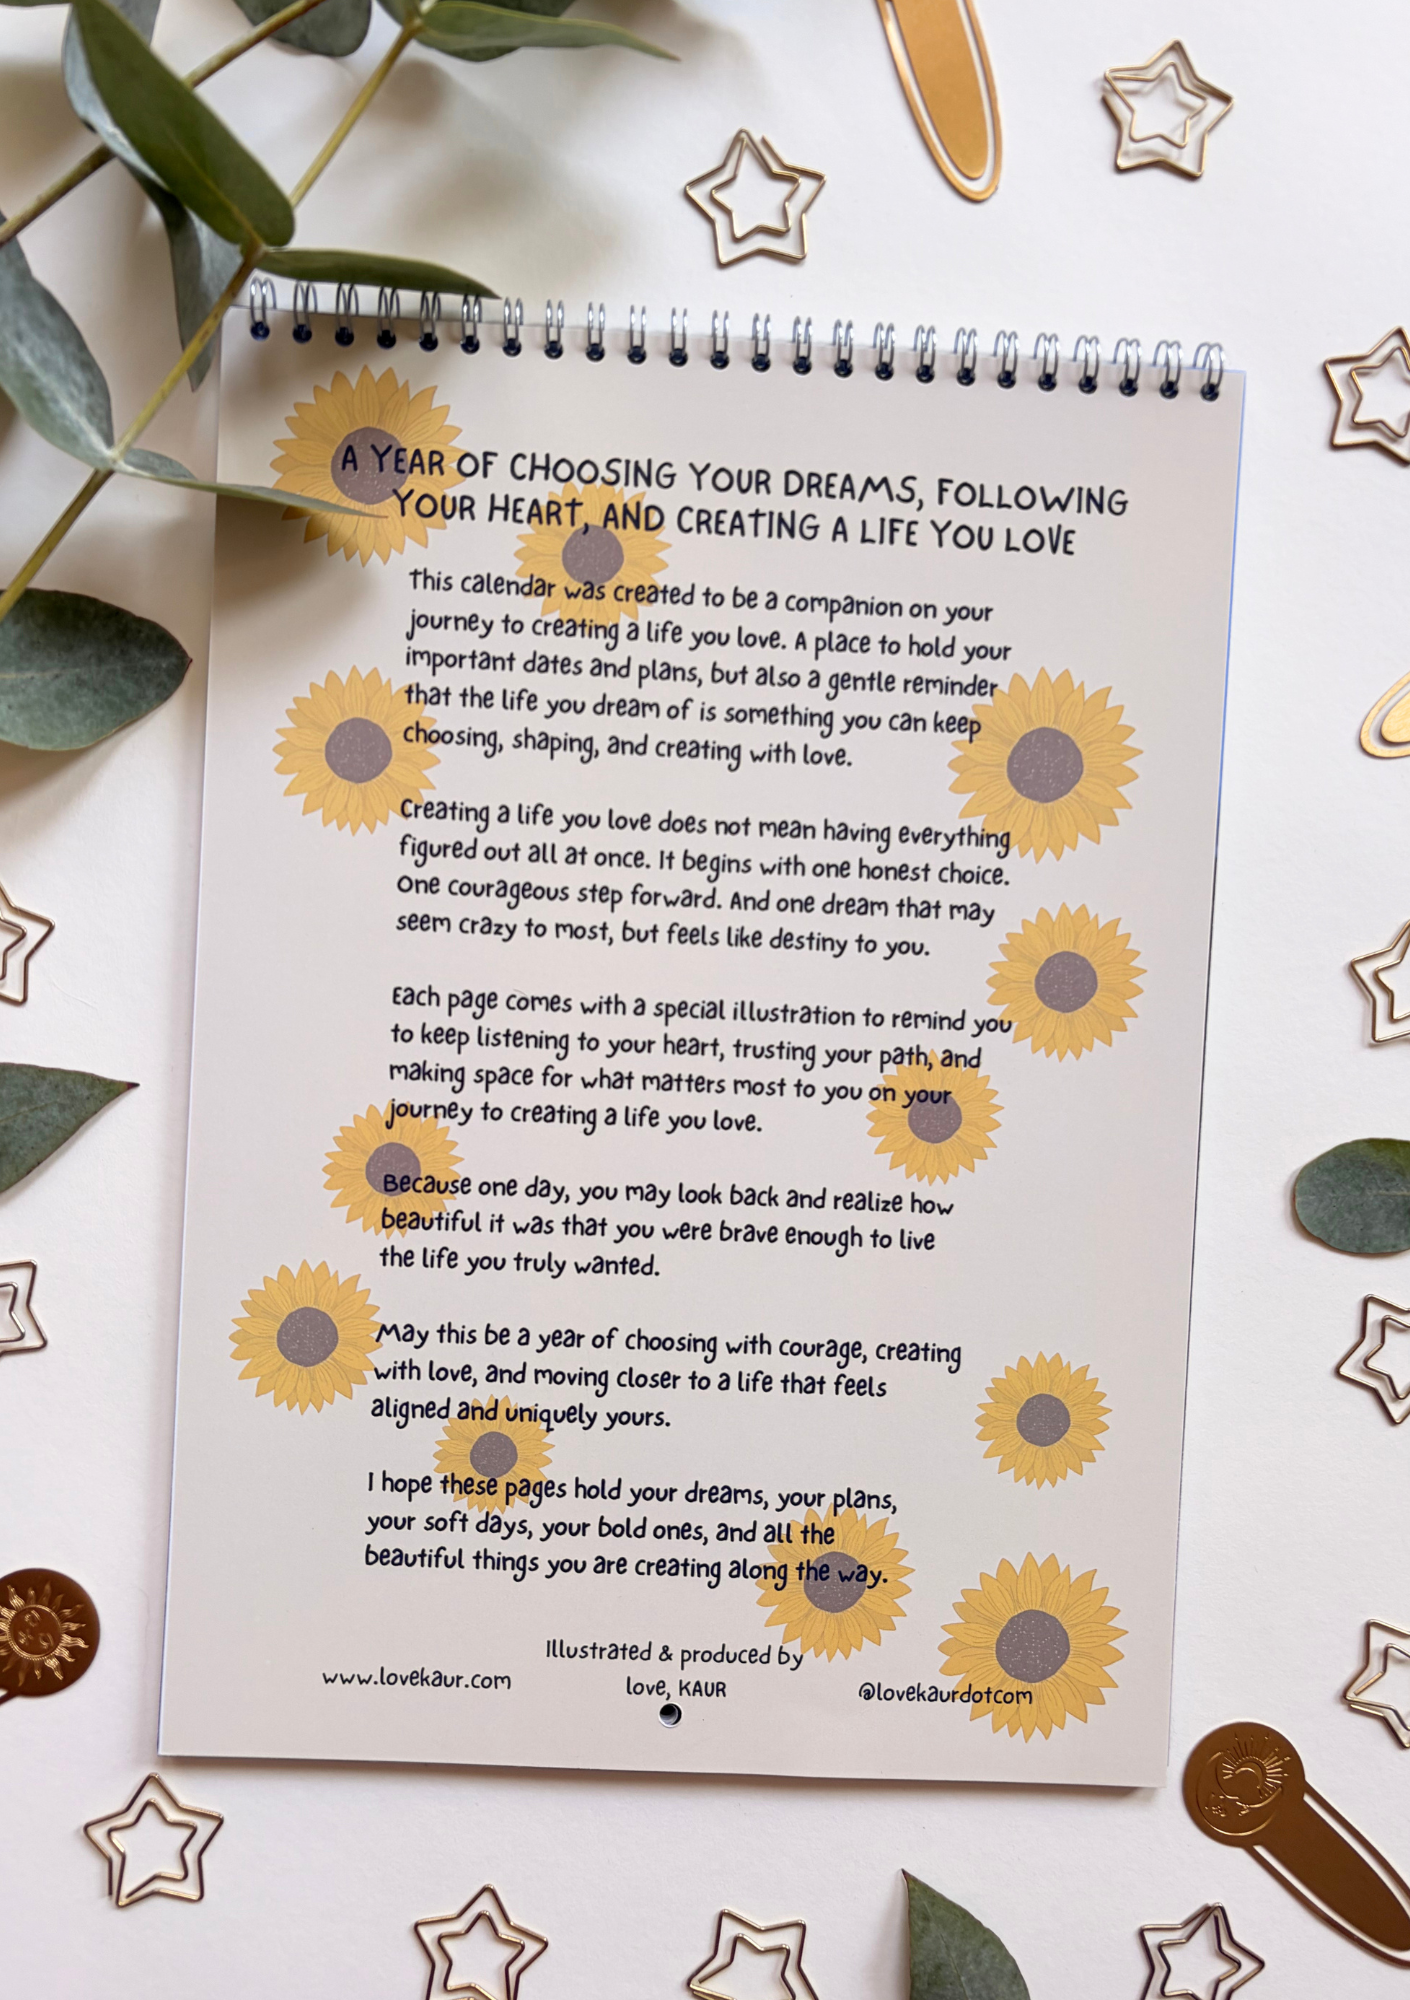 A YEAR OF CHOOSING YOUR DREAMS, FOLLOWING
YOUR HEART, AND CREATING A LIFE YOU LOVE
This calendar was created to be a companion on your
journey to creating a life you love. A place to hold your
important dates and plans, but also a gentle reminder
that the life you dream of is something you can keep
choosing, shaping, and creating with love.
Creating a life you love does not mean having everything
figured out all at once. It begins with one honest choice.
One courageous step forward. And one dream that may
seem crazy to most, but feels like destiny to you.
Each page comes with a special illustration to remind you
to keep listening to your heart, trusting your path, and
making space for what matters most to you on your
journey to creating a life you love.
Because one day, you may look back and realize how
beautiful it was that you were brave enough to live
the life you truly wanted.
May this be a year of choosing with courage, creating
with love, and moving closer to a life that feels
aligned and uniquely yours.
I hope these pages hold your dreams, your plans,
your soft days, your bold ones, and all the
beautiful things you are creating along the way.
Illustrated & produced by
love, KAUR
www.lovekaur.com
@lovekaurdotcom